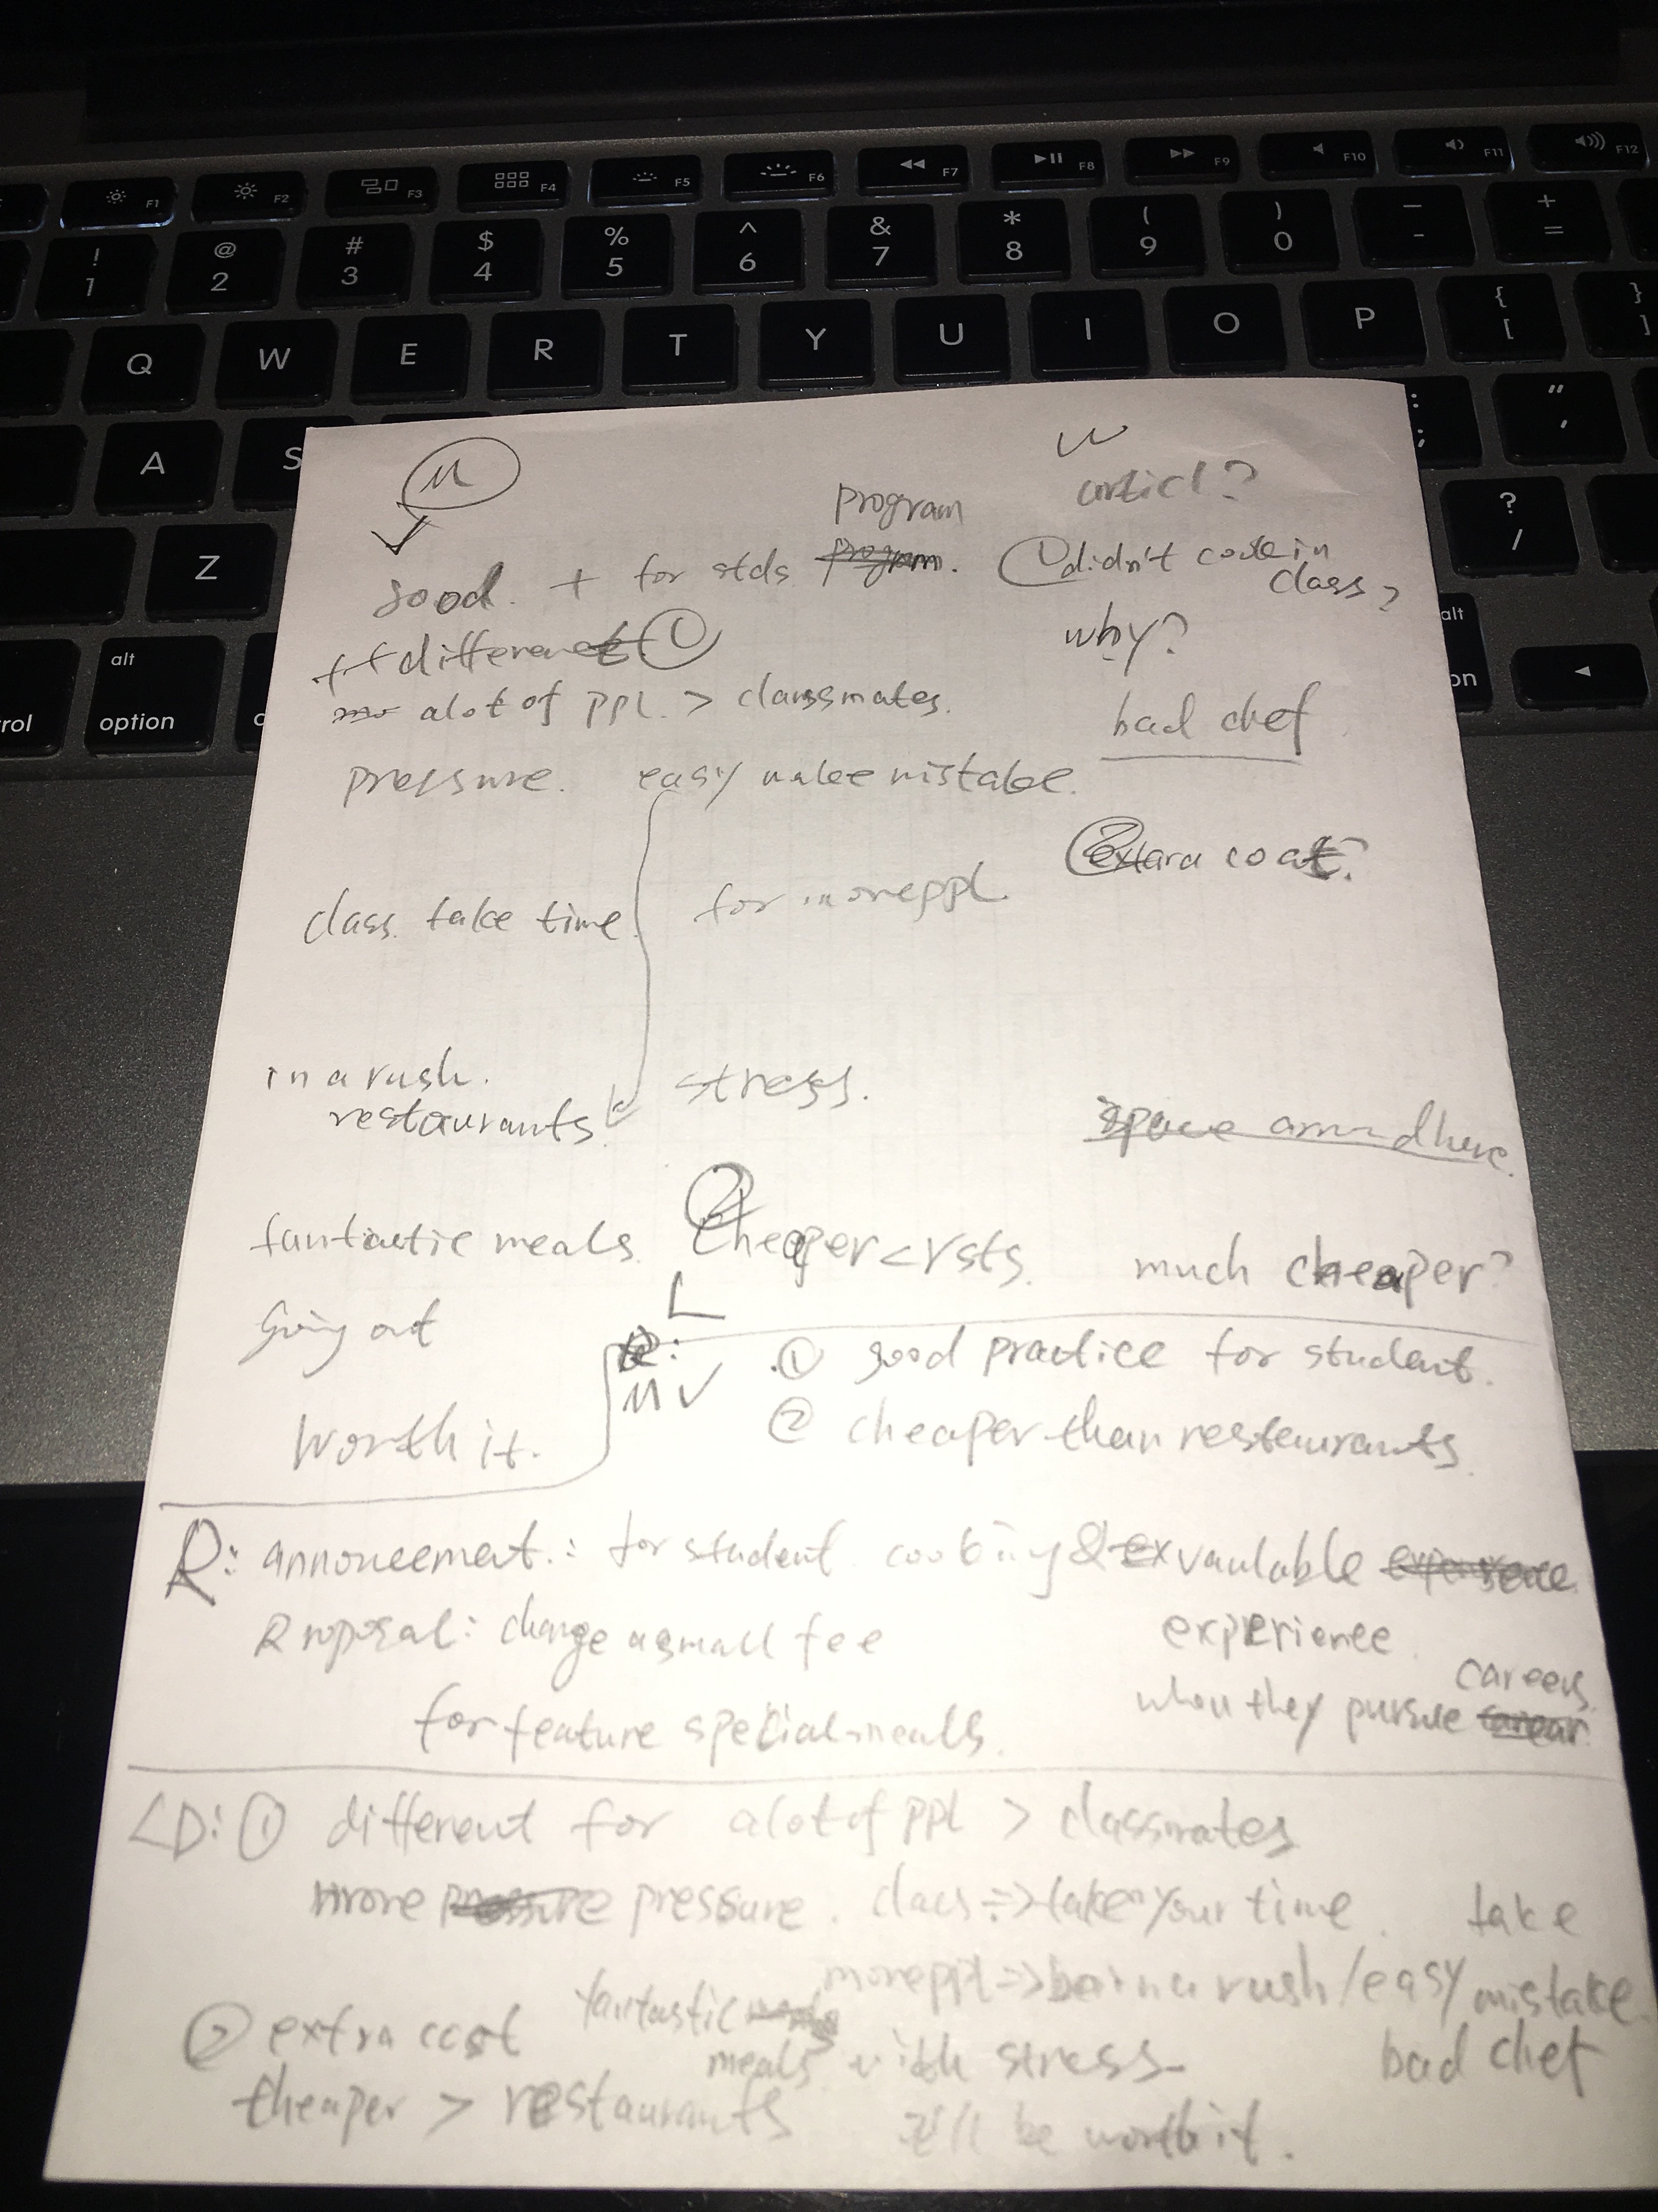 F1 F2 F3 F4 F5 F6 F7 F8 F9 F10 F11 F12
! 1 @ 2 # 3 $ 4 % 5 ^ 6 & 7 * 8 ( 9 ) 0 _ - + =
Q W E R T Y U I O P { [ } ]
A S : ; " '
Z ? /
alt option alt
M
W
articl?
program
good. + for stds program. ① didn't cook in
class?
++ different ①
why?
alot of ppl. > classmates.
bad chef
pressure. easy make mistake.
② extara coat?
class. take time. for more ppl.
in a rush. stress.
restaurants.
space around here.
②
fantastic meals. cheaper < rsts. much cheaper?
L
Going out
M ✓ ① good practice for student.
worth it. ② cheaper than restaurants.
R: annoucement.: for student cooking & ex vauluable experience
experience.
Proposal: charge a small fee
careers.
for feature special meals. when they pursue
LD: ① different for alot of ppl > classmates
more pressure pressure. class => take your time. take
more ppl => be in a rush / easy mistake.
② extra cost fantastic meals
meals with stress bad chef
cheaper > restaurants it'll be worth it.